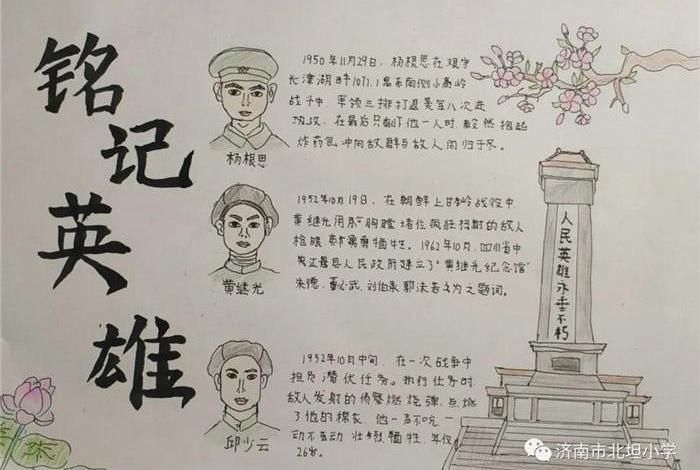 铭记英雄
1950年11月29日，杨根思在艰守
长津湖畔1071.1高布南侧小高岭
战斗中，率领三排打退美军八次进
攻，在最后只剩下他一人时，毅然抱起
炸药包冲向敌群与敌人同归于尽。
杨根思
1952年10月19日，在朝鲜上甘岭战役中，
黄继光用胸膛堵住疯狂扫射的敌人
枪眼，英勇牺牲。1962年10月，四川省中
江县人民政府建立了"黄继光纪念馆"
朱德、董必武、刘伯承、郭沫若为之题词。
黄继光
1952年10月中旬，在一次战争中
担负潜伏任务。执行任务时，
敌人发射的侦察燃烧弹，点燃
了他的棉衣，他一声不吭，一
动不动，壮烈牺牲，年仅
26岁。
邱少云
人民英雄永垂不朽
济南市北坦小学